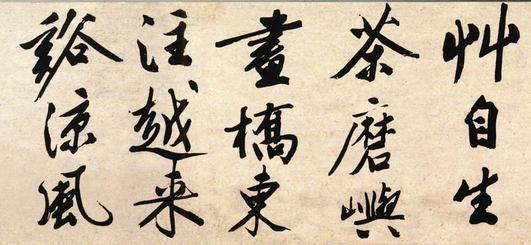 艸自生
茶磨嶼
畫橋東
注越来
谿涼風